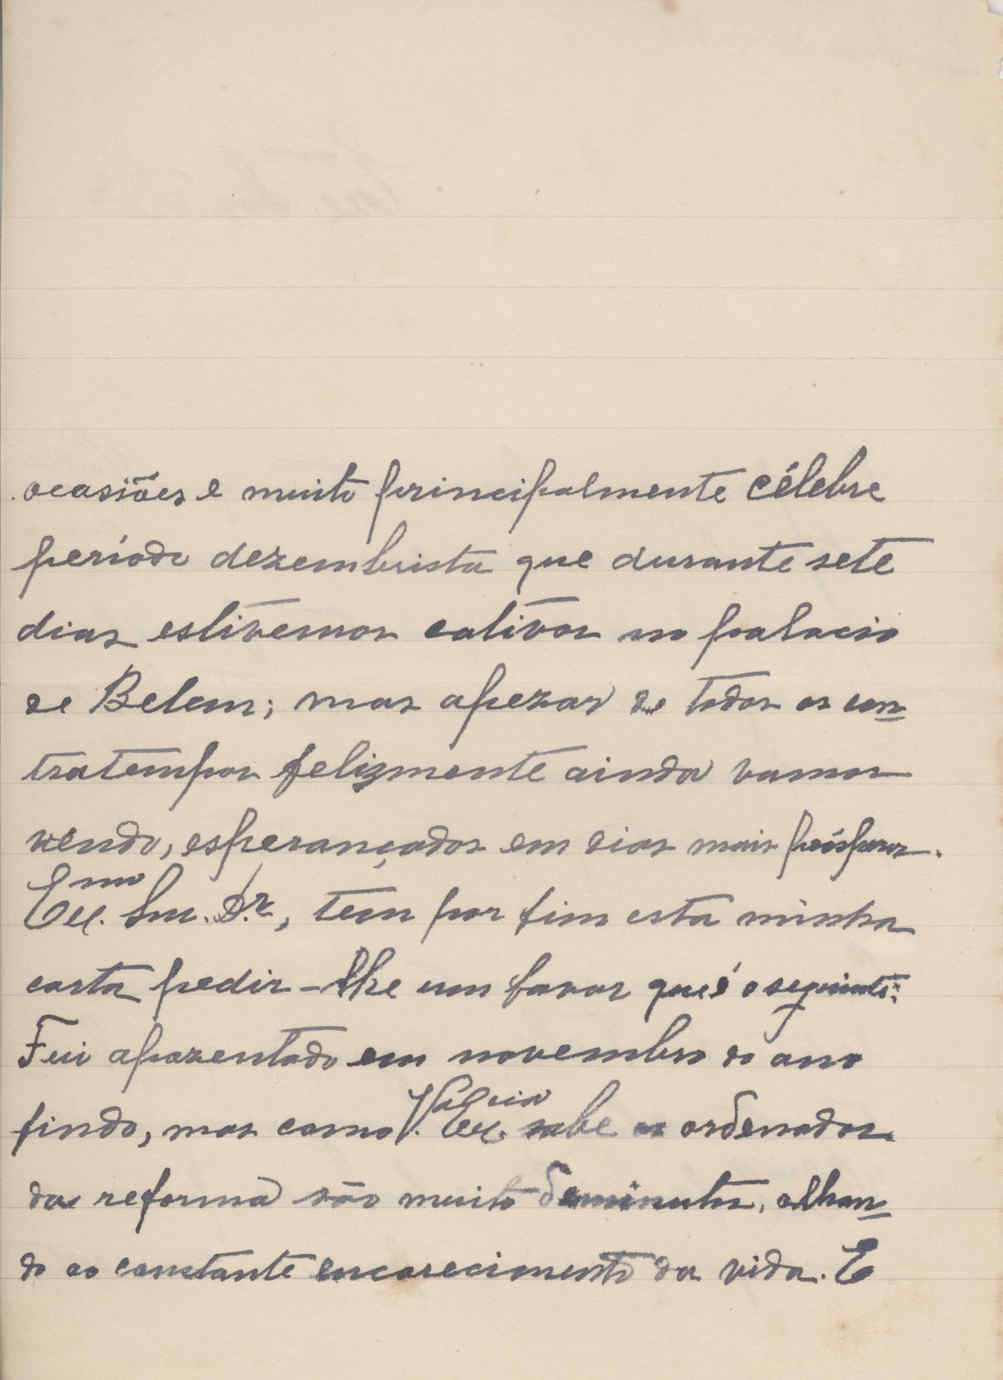 ocasiões e muito principalmente célebre
período dezembrista que durante sete
dias estivemos cativos no palacio
de Belem; mas apezar de todos os con=
tratempos felizmente ainda vamos
vendo, esperançados em dias mais prósperos.
Exmo Snr. Dr., tem por fim esta minha
carta pedir-lhe um favor que é o seguinte:
Fui apozentado em novembro do ano
findo, mas como V.ª Excia sabe os ordenados
da reforma são muito deminutos, olhan=
do ao constante encarecimento da vida. E